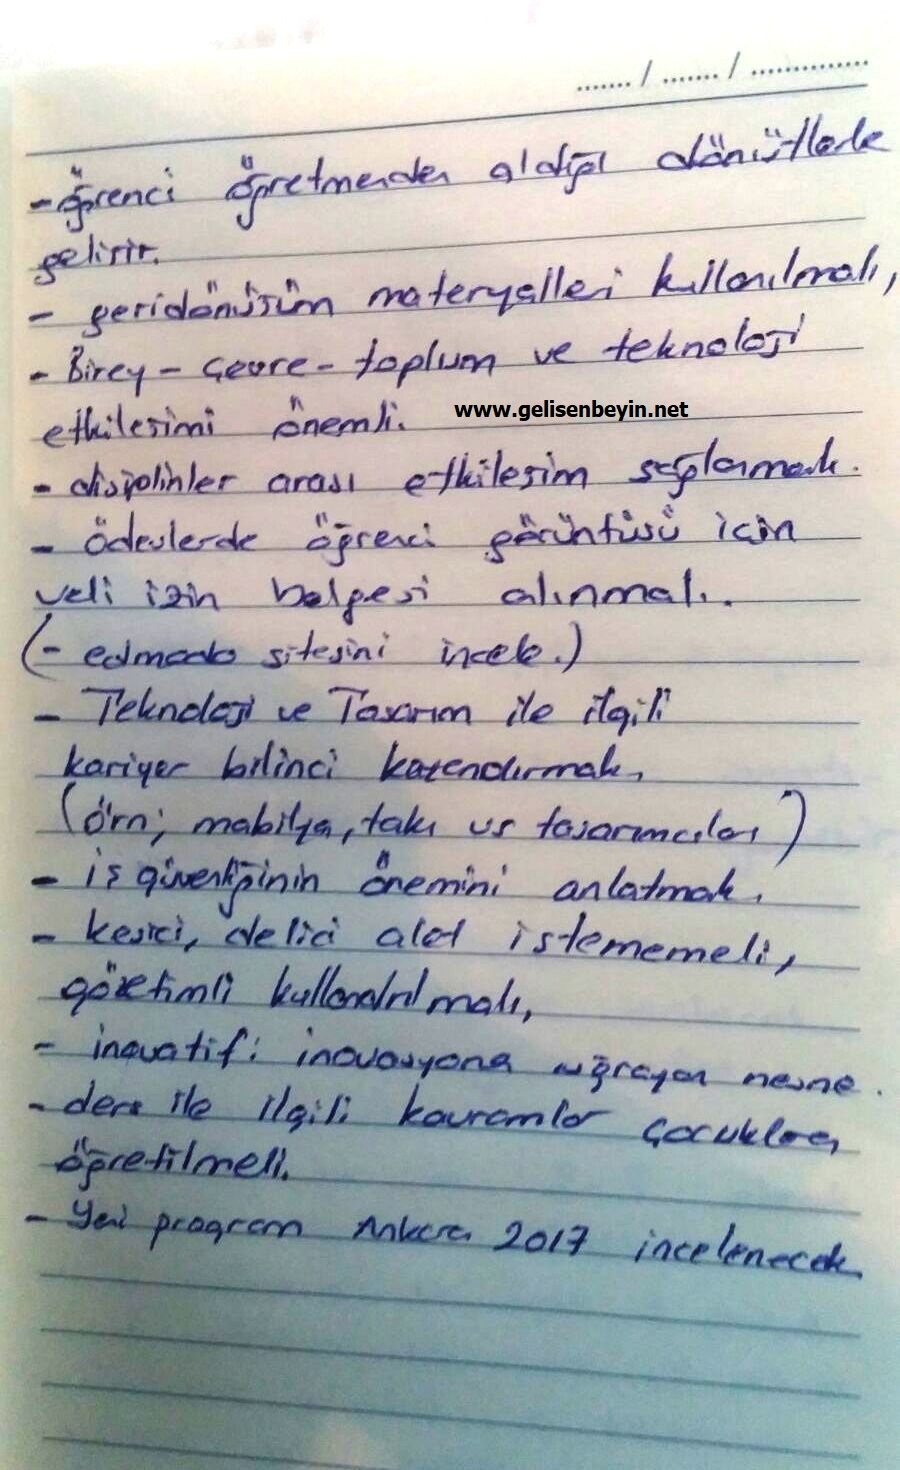 ....... / ....... / ..............
- öğrenci öğretmenden aldığı dönütlerle
gelişir.
- geridönüşüm materyalleri kullanılmalı,
- Birey - çevre - toplum ve teknoloji
etkileşimi önemli.
www.gelisenbeyin.net
- disiplinler arası etkileşim sağlamak.
- Ödevlerde öğrenci görüntüsü için
veli izin belgesi alınmalı.
(- edmodo sitesini incele.)
- Teknoloji ve Tasarım ile ilgili
kariyer bilinci kazandırmak,
(örn; mobilya, takı vs tasarımcıları)
- iş güvenliğinin önemini anlatmak.
- kesici, delici alet istememeli,
gözetimli kullandırılmalı,
- inovatif: inovasyona uğrayan nesne.
- ders ile ilgili kavramlar çocuklara
öğretilmeli.
- Yeni program Ankara 2017 incelenecek.